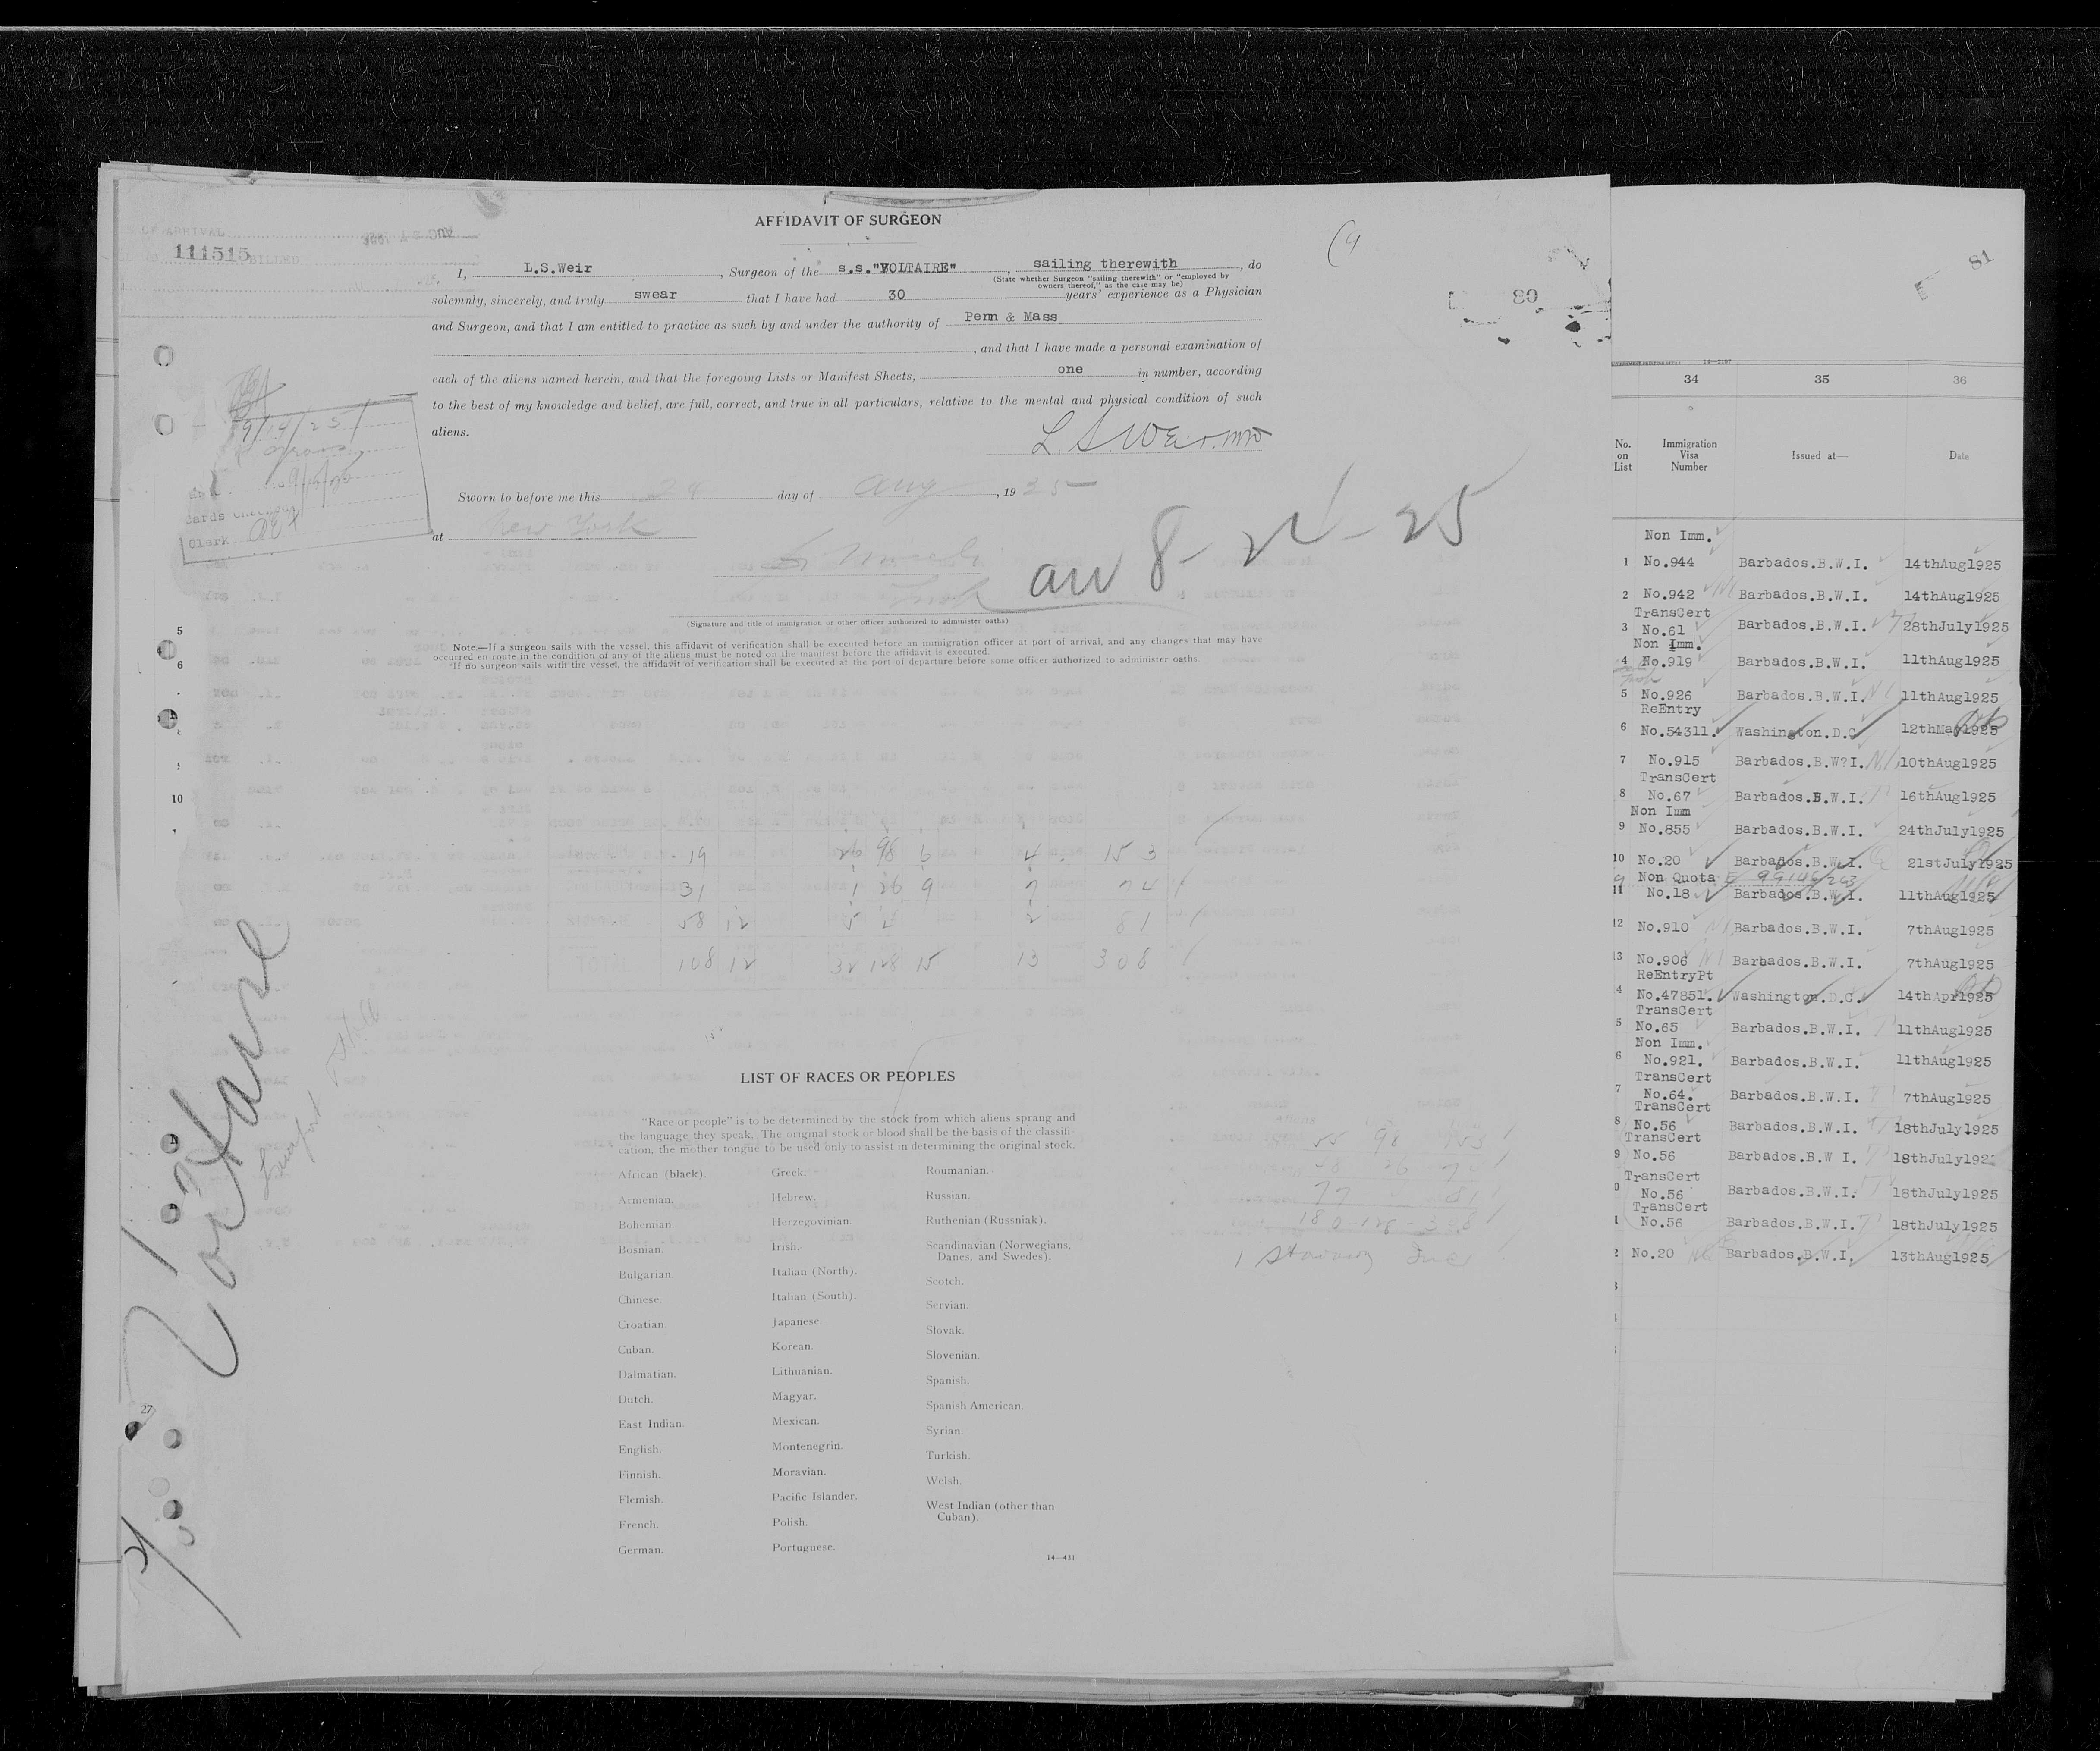 AFFIDAVIT OF SURGEON
111515
I, L.S.Weir, Surgeon of the s.s."VOLTAIRE", sailing therewith, do
(State whether Surgeon "sailing therewith" or "employed by
owners thereof," as the case may be)
solemnly, sincerely, and truly swear that I have had 30 years' experience as a Physician
and Surgeon, and that I am entitled to practice as such by and under the authority of Penn & Mass
, and that I have made a personal examination of
each of the aliens named herein, and that the foregoing Lists or Manifest Sheets, one in number, according
to the best of my knowledge and belief, are full, correct, and true in all particulars, relative to the mental and physical condition of such
aliens.
Sworn to before me this 24 day of Aug, 1925
at New York
8-24-25
(Signature and title of immigration or other officer authorized to administer oaths)
Note.—If a surgeon sails with the vessel, this affidavit of verification shall be executed before an immigration officer at port of arrival, and any changes that may have
occurred en route in the condition of any of the aliens must be noted on the manifest before the affidavit is executed.
*If no surgeon sails with the vessel, the affidavit of verification shall be executed at the port of departure before some officer authorized to administer oaths.
Clerk
5
6
10
27
Voltaire
19 26 98 6 4 153
31 1 26 9 7 74
58 12 5 4 2 81
TOTAL 108 12 32 128 15 13 308
LIST OF RACES OR PEOPLES
"Race or people" is to be determined by the stock from which aliens sprang and
the language they speak. The original stock or blood shall be the basis of the classifi-
cation, the mother tongue to be used only to assist in determining the original stock.
African (black).
Armenian.
Bohemian.
Bosnian.
Bulgarian.
Chinese.
Croatian.
Cuban.
Dalmatian.
Dutch.
East Indian.
English.
Finnish.
Flemish.
French.
German.
Greek.
Hebrew.
Herzegovinian.
Irish.
Italian (North).
Italian (South).
Japanese.
Korean.
Lithuanian.
Magyar.
Mexican.
Montenegrin.
Moravian.
Pacific Islander.
Polish.
Portuguese.
Roumanian.
Russian.
Ruthenian (Russniak).
Scandinavian (Norwegians,
Danes, and Swedes).
Scotch.
Servian.
Slovak.
Slovenian.
Spanish.
Spanish American.
Syrian.
Turkish.
Welsh.
West Indian (other than
Cuban).
14—431
80
81
34 35 36
No.
on
List
Immigration
Visa
Number
Issued at—
Date
Non Imm.
1 No.944 Barbados.B.W.I. 14thAug1925
2 No.942 Barbados.B.W.I. 14thAug1925
TransCert
3 No.61 Barbados.B.W.I. 28thJuly1925
Non Imm.
4 No.919 Barbados.B.W.I. 11thAug1925
5 No.926 Barbados.B.W.I. 11thAug1925
ReEntry
6 No.54311. Washington.D.C. 12thMay1925
7 No.915 Barbados.B.W?I. 10thAug1925
TransCert
8 No.67 Barbados.B.W.I. 16thAug1925
Non Imm
9 No.855 Barbados.B.W.I. 24thJuly1925
10 No.20 Barbados.B.W.I. 21stJuly1925
Non Quota
11 No.18. Barbados.B.W.I. 11thAug1925
12 No.910 Barbados.B.W.I. 7thAug1925
13 No.906 Barbados.B.W.I. 7thAug1925
ReEntryPt
4 No.47851. Washington.D.C. 14thApr1925
TransCert
5 No.65 Barbados.B.W.I. 11thAug1925
Non Imm.
6 No.921. Barbados.B.W.I. 11thAug1925
TransCert
7 No.64. Barbados.B.W.I. 7thAug1925
TransCert
8 No.56 Barbados.B.W.I. 18thJuly1925
TransCert
9 No.56 Barbados.B.W I. 18thJuly192
TransCert
0 No.56 Barbados.B.W.I. 18thJuly1925
TransCert
1 No.56 Barbados.B.W.I. 18thJuly1925
2 No.20 Barbados.B.W.I. 13thAug1925